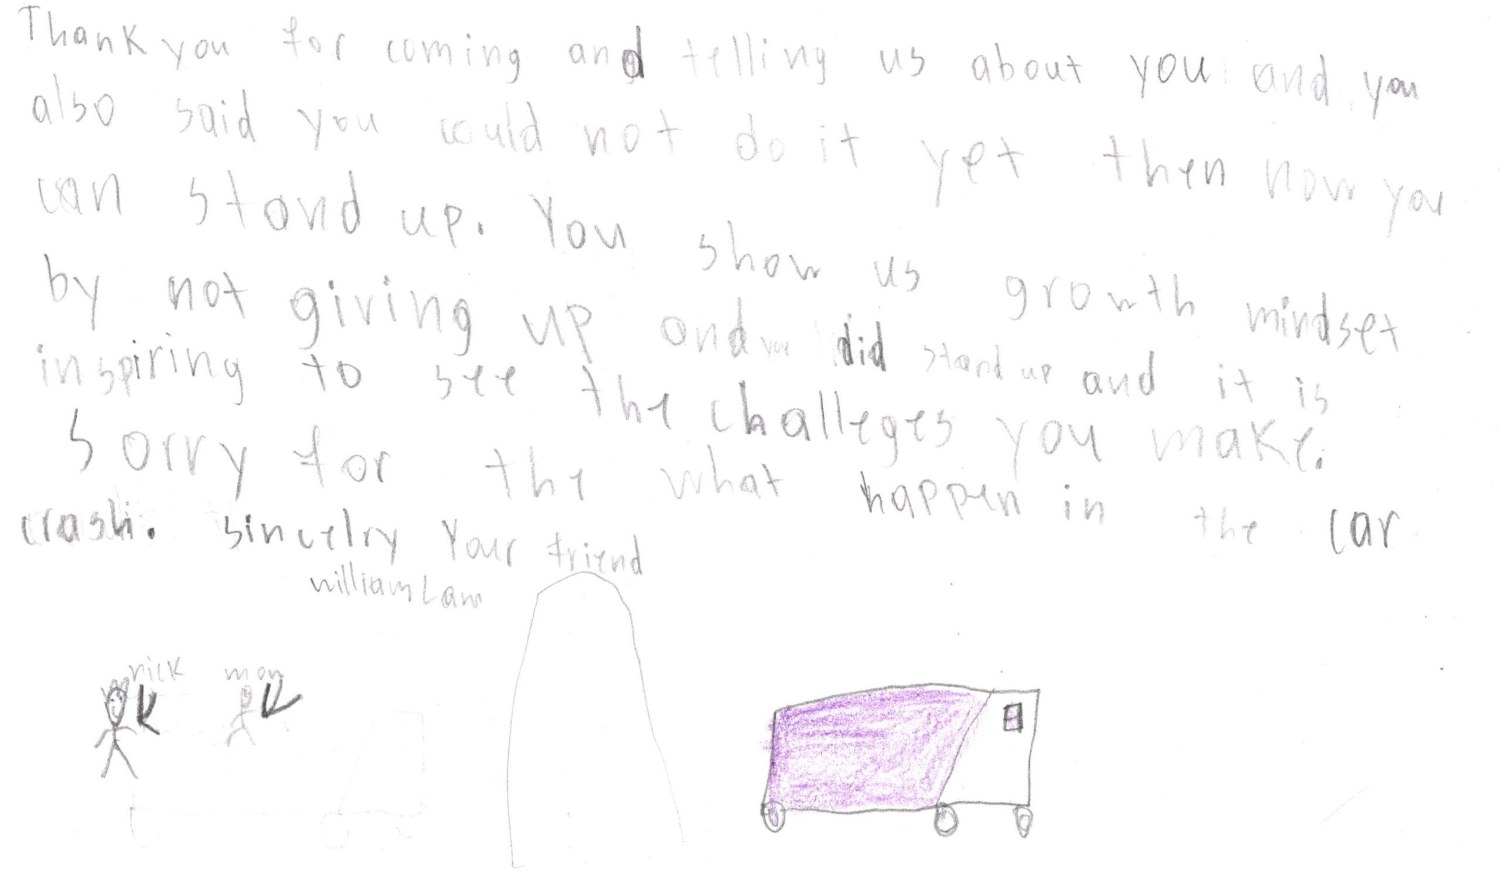 Thank you for coming and telling us about you and you
also said you could not do it yet then now you
can stand up. You show us growth mindset
by not giving up and you did stand up and it is
inspiring to see the challeges you make.
Sorry for the what happen in the car
crash. sincelry Your friend
william Lam
rick mom